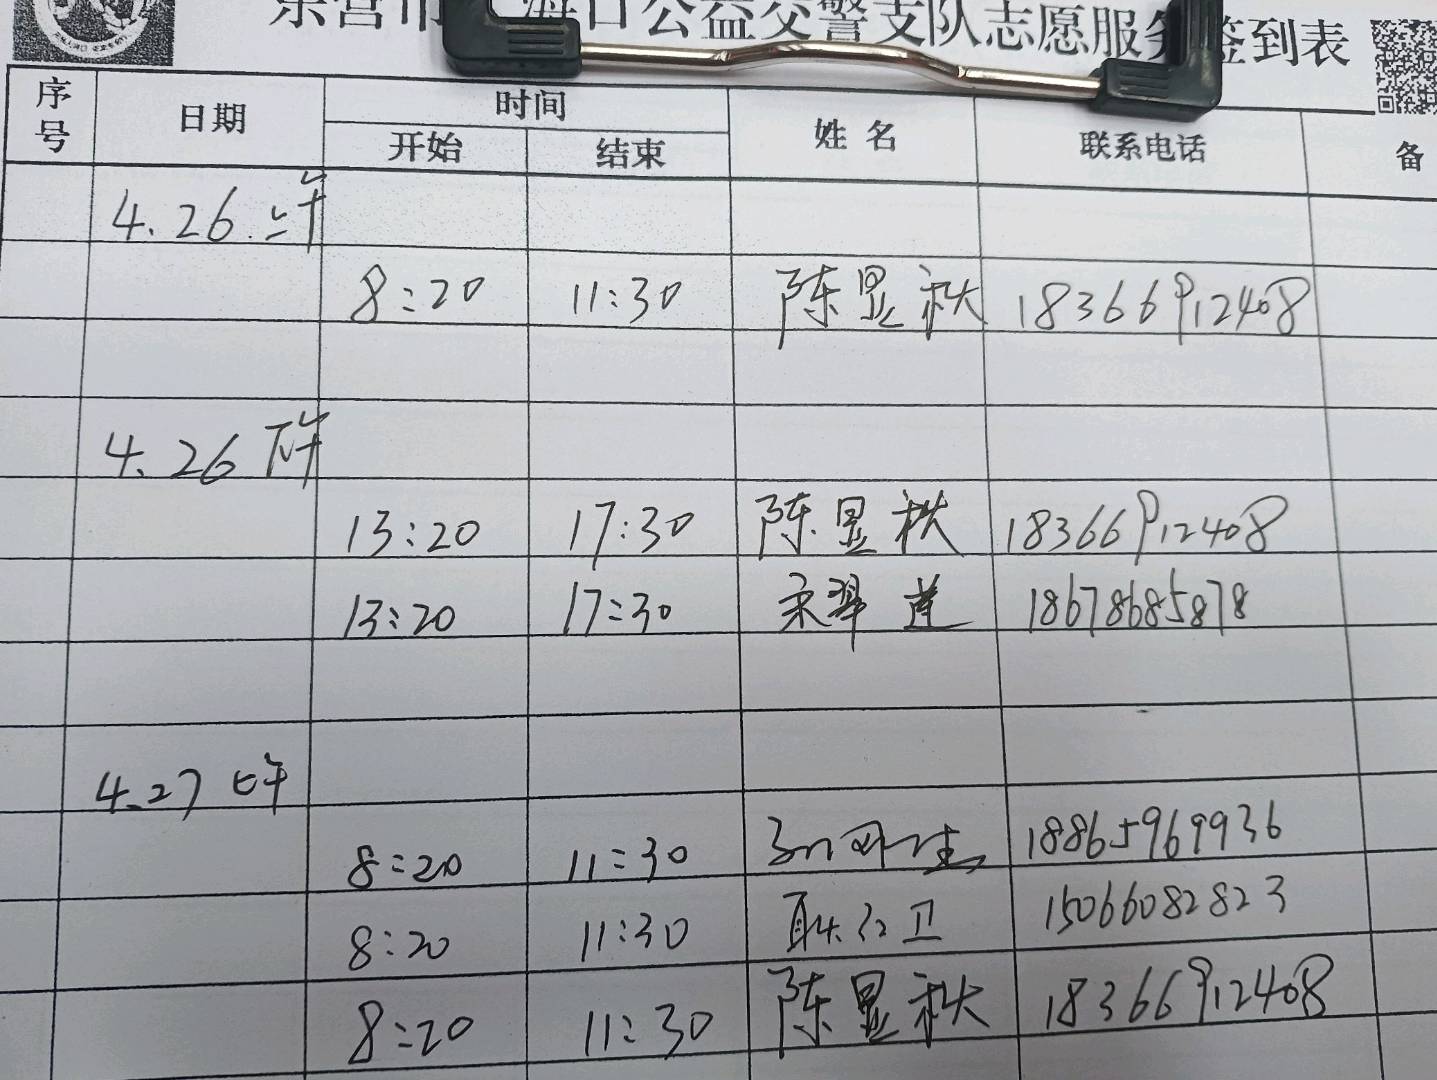 东营市 海口公益交警支队志愿服务签到表
序号 日期 时间 姓名 联系电话 备
开始 结束
4.26 上午
8:20 11:30 陈显秋 18366912408
4.26 下午
13:20 17:30 陈显秋 18366912408
13:20 17:30 宋翠莲 18678685878
4.27 上午
8:20 11:30 18865969936
8:20 11:30 耿红卫 15066082823
8:20 11:30 陈显秋 18366912408